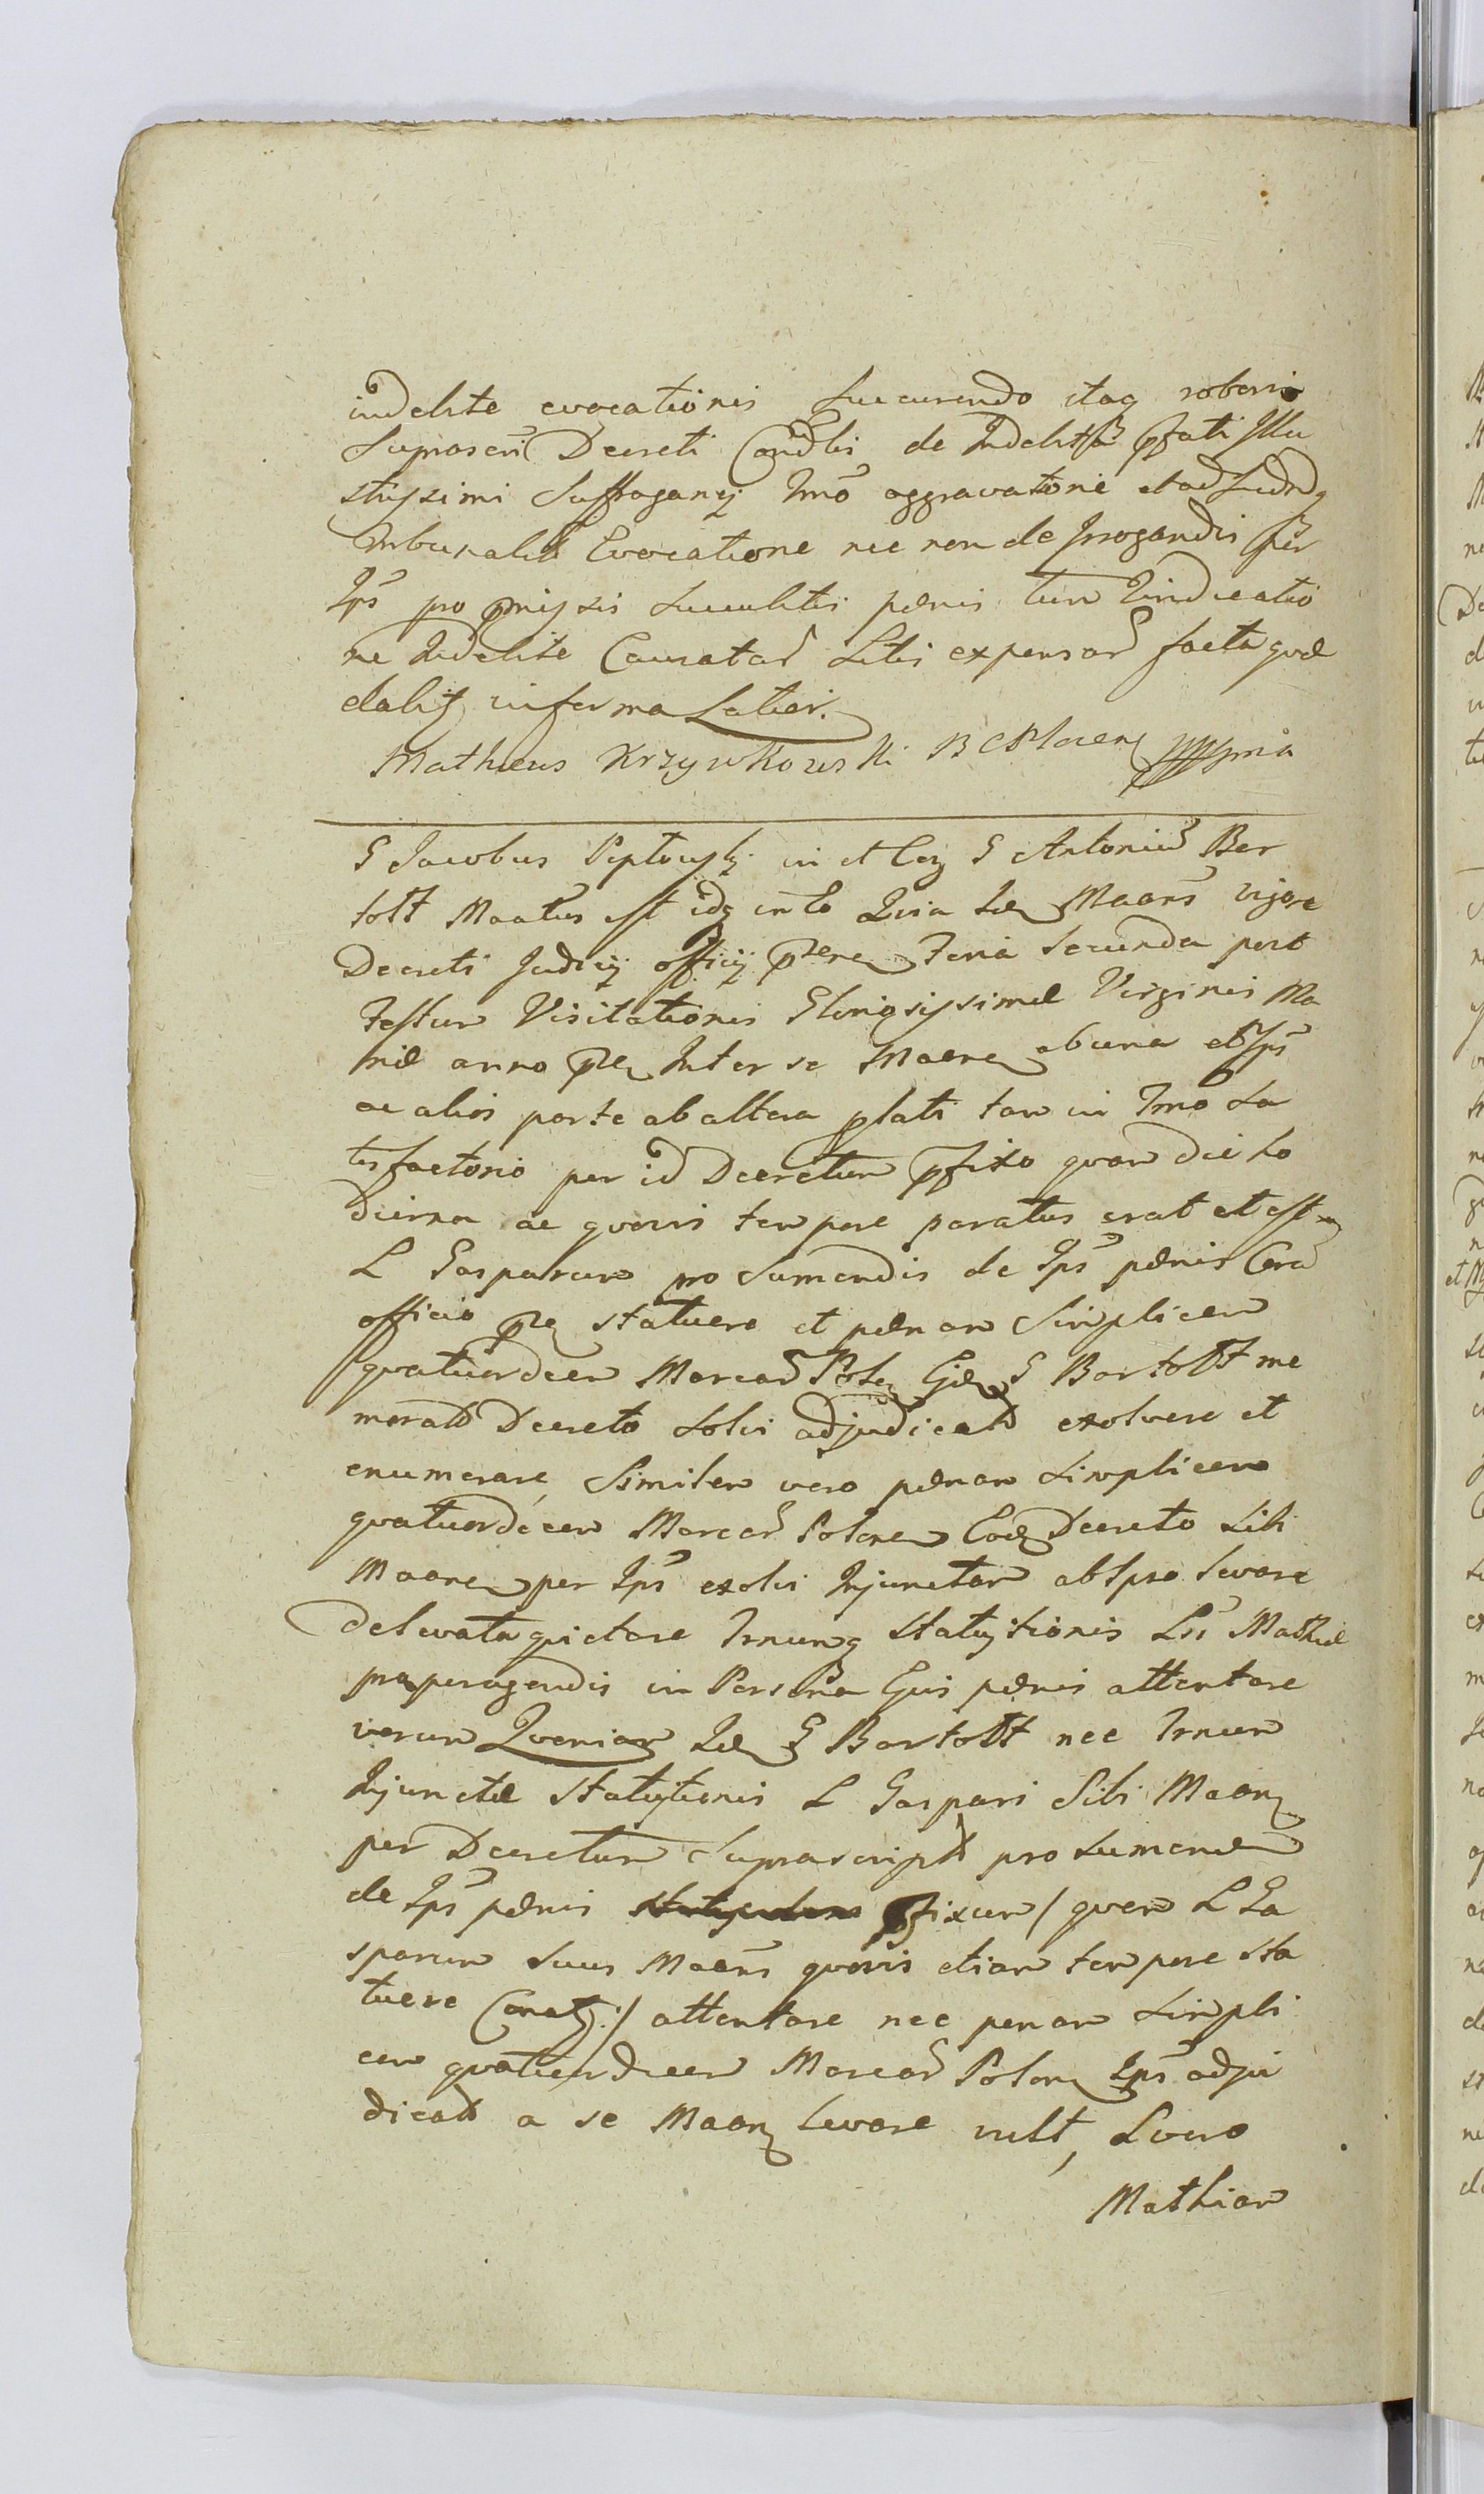 indebite evocationis succurendo itaq roboris
suprascri Decreti Condlis de Indebita pfati Illu
strissimi Suffraganej Imo aggravatione et ad
Tribunalis Evocatione nec non de Irrogandis per
Ips pro pmissis succubitis penis tum Vindicatio
ne Indebite Causatar Litis expensar facta quae
dabit in forma Latiori.
Matheus Krzywkowski B C Plocen mpria
G Jacobus in et G Antonium Bar
toltt Maatus est idq Quia Maans vigore
Decreti Judicij officij Feria secunda post
Festum Visitationis Gloriosissimae Virginis Ma
riae anno Inter se Maane ab una et Ips
ac alios parte ab altera plati tam in Tmo Sa
tisfactorio per id Decretum pfixo quam die ho
dierna ac quovis tempore paratus erat et est
L Gasparum pro sumendis de Ips penis Cora
officio statuere et penam simplicem
quatuordecem Marcar Pol G Bartoltt me
morato Decreto solvi adjudicata exolvere et
enumerare, similem vero penam simplicem
quatuordecem Marcar Polone Eod Decreto sibi
Maane per Ips exolvi Injunctam ab Ipso levare
de levata quietare Tmumq statuitionis Lsi Mathiae
pro peragendis in Persona Ejus penis attentare
verum Quoniam G Bartoltt nec Tmum
Injunctae statuitionis L Gaspari Sibi Maan
per Decretum suprascript pro sumend
de Ips penis pfixum / quem L Ga
sparum suus Maans quovis etiam tempore sta
tuere Conat:/ attentare nec penam simpli
cem quatuordecem Marcar Polon Ips adju
dicata a se Maan levare vult, L vero
Mathiam